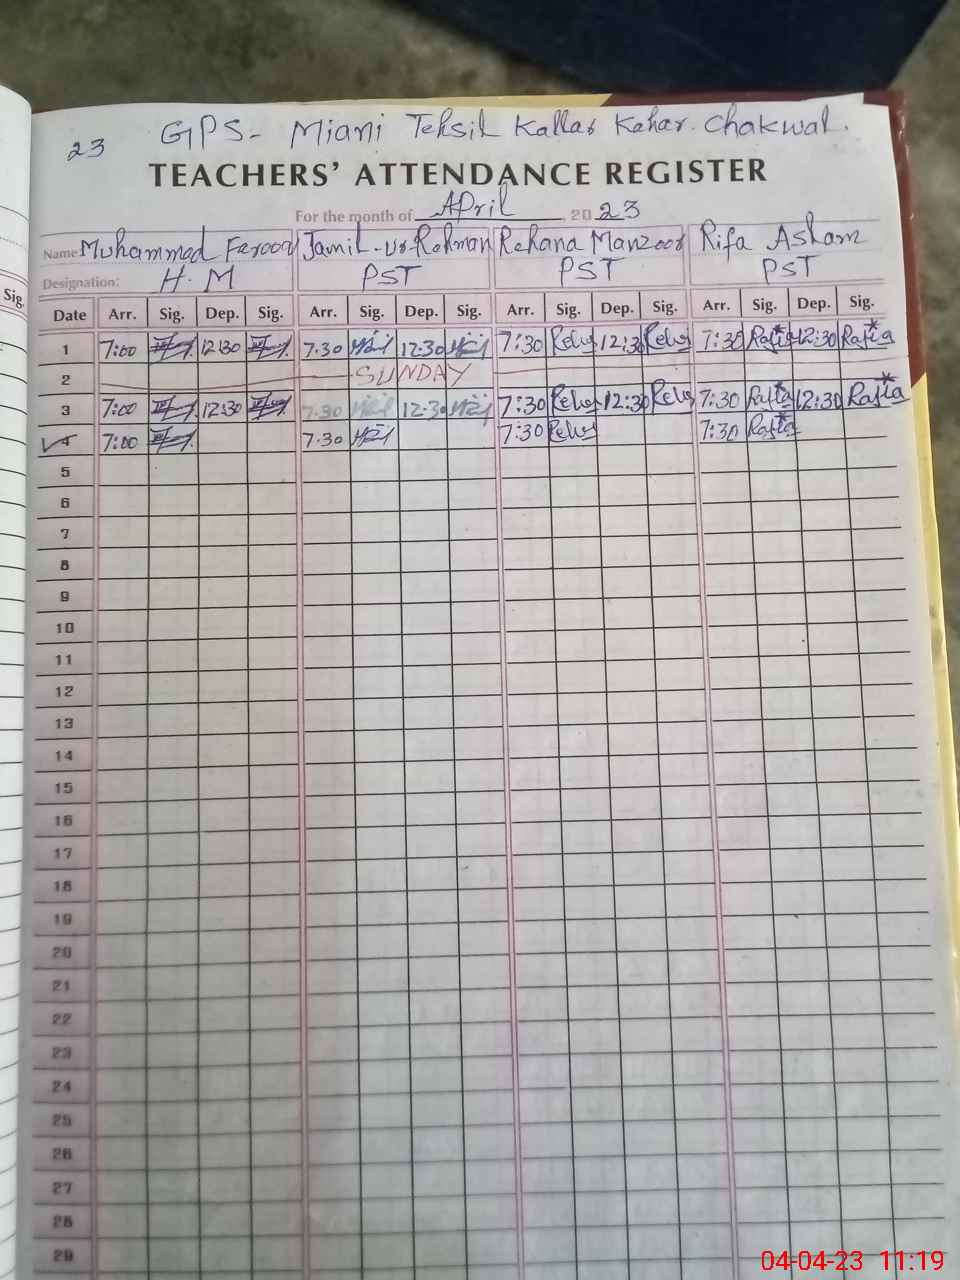 23 GPS - Miani Tehsil Kallar Kahar. Chakwal.
TEACHERS' ATTENDANCE REGISTER
For the month of April, 2023
Name Muhammad Farooq Jamil-ur-Rehman Rehana Manzoor Rifa Aslam
Designation: H.M PST PST PST
Sig.
Date Arr. Sig. Dep. Sig. Arr. Sig. Dep. Sig. Arr. Sig. Dep. Sig. Arr. Sig. Dep. Sig.
1 7:00 12:30 7.30 12.30 7:30 12:30 7:30 Rafia 12:30 Rafia
2 SUNDAY
3 7:00 12:30 7.30 12.30 7:30 12:30 7:30 Rafia 12:30 Rafia
4 7:00 7.30 7:30 7:30 Rafia
5
6
7
8
9
10
11
12
13
14
15
16
17
18
19
20
21
22
23
24
25
26
27
28
29
04-04-23 11:19